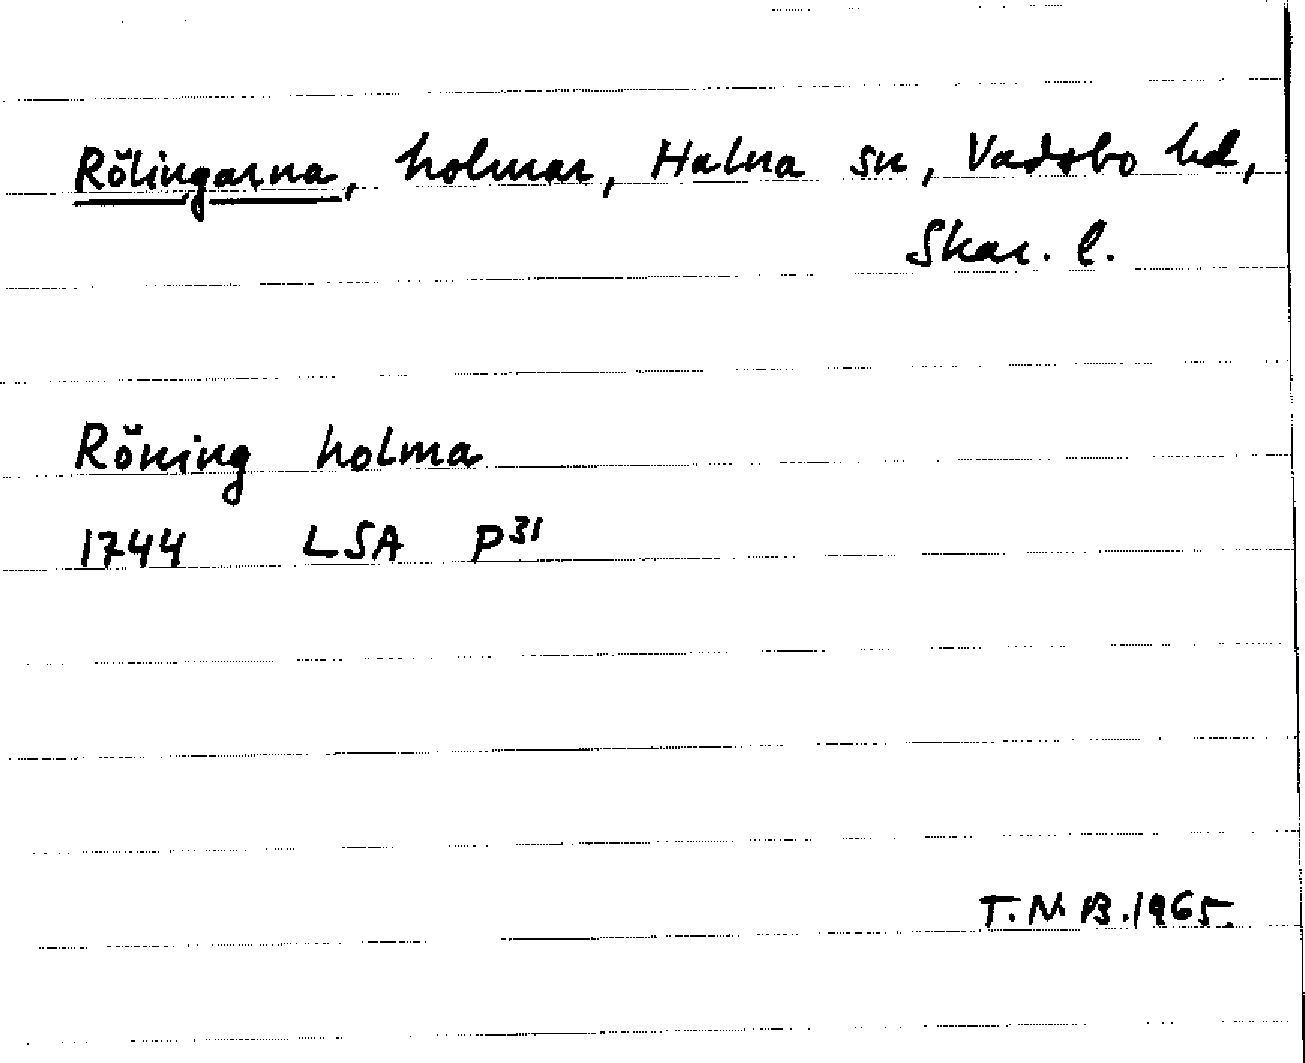 Rölingarna, holmar, Halna sn, Vadsbo hd,
Skar. l.
Röning holma
1744 LSA P31
T.N.B.1965.